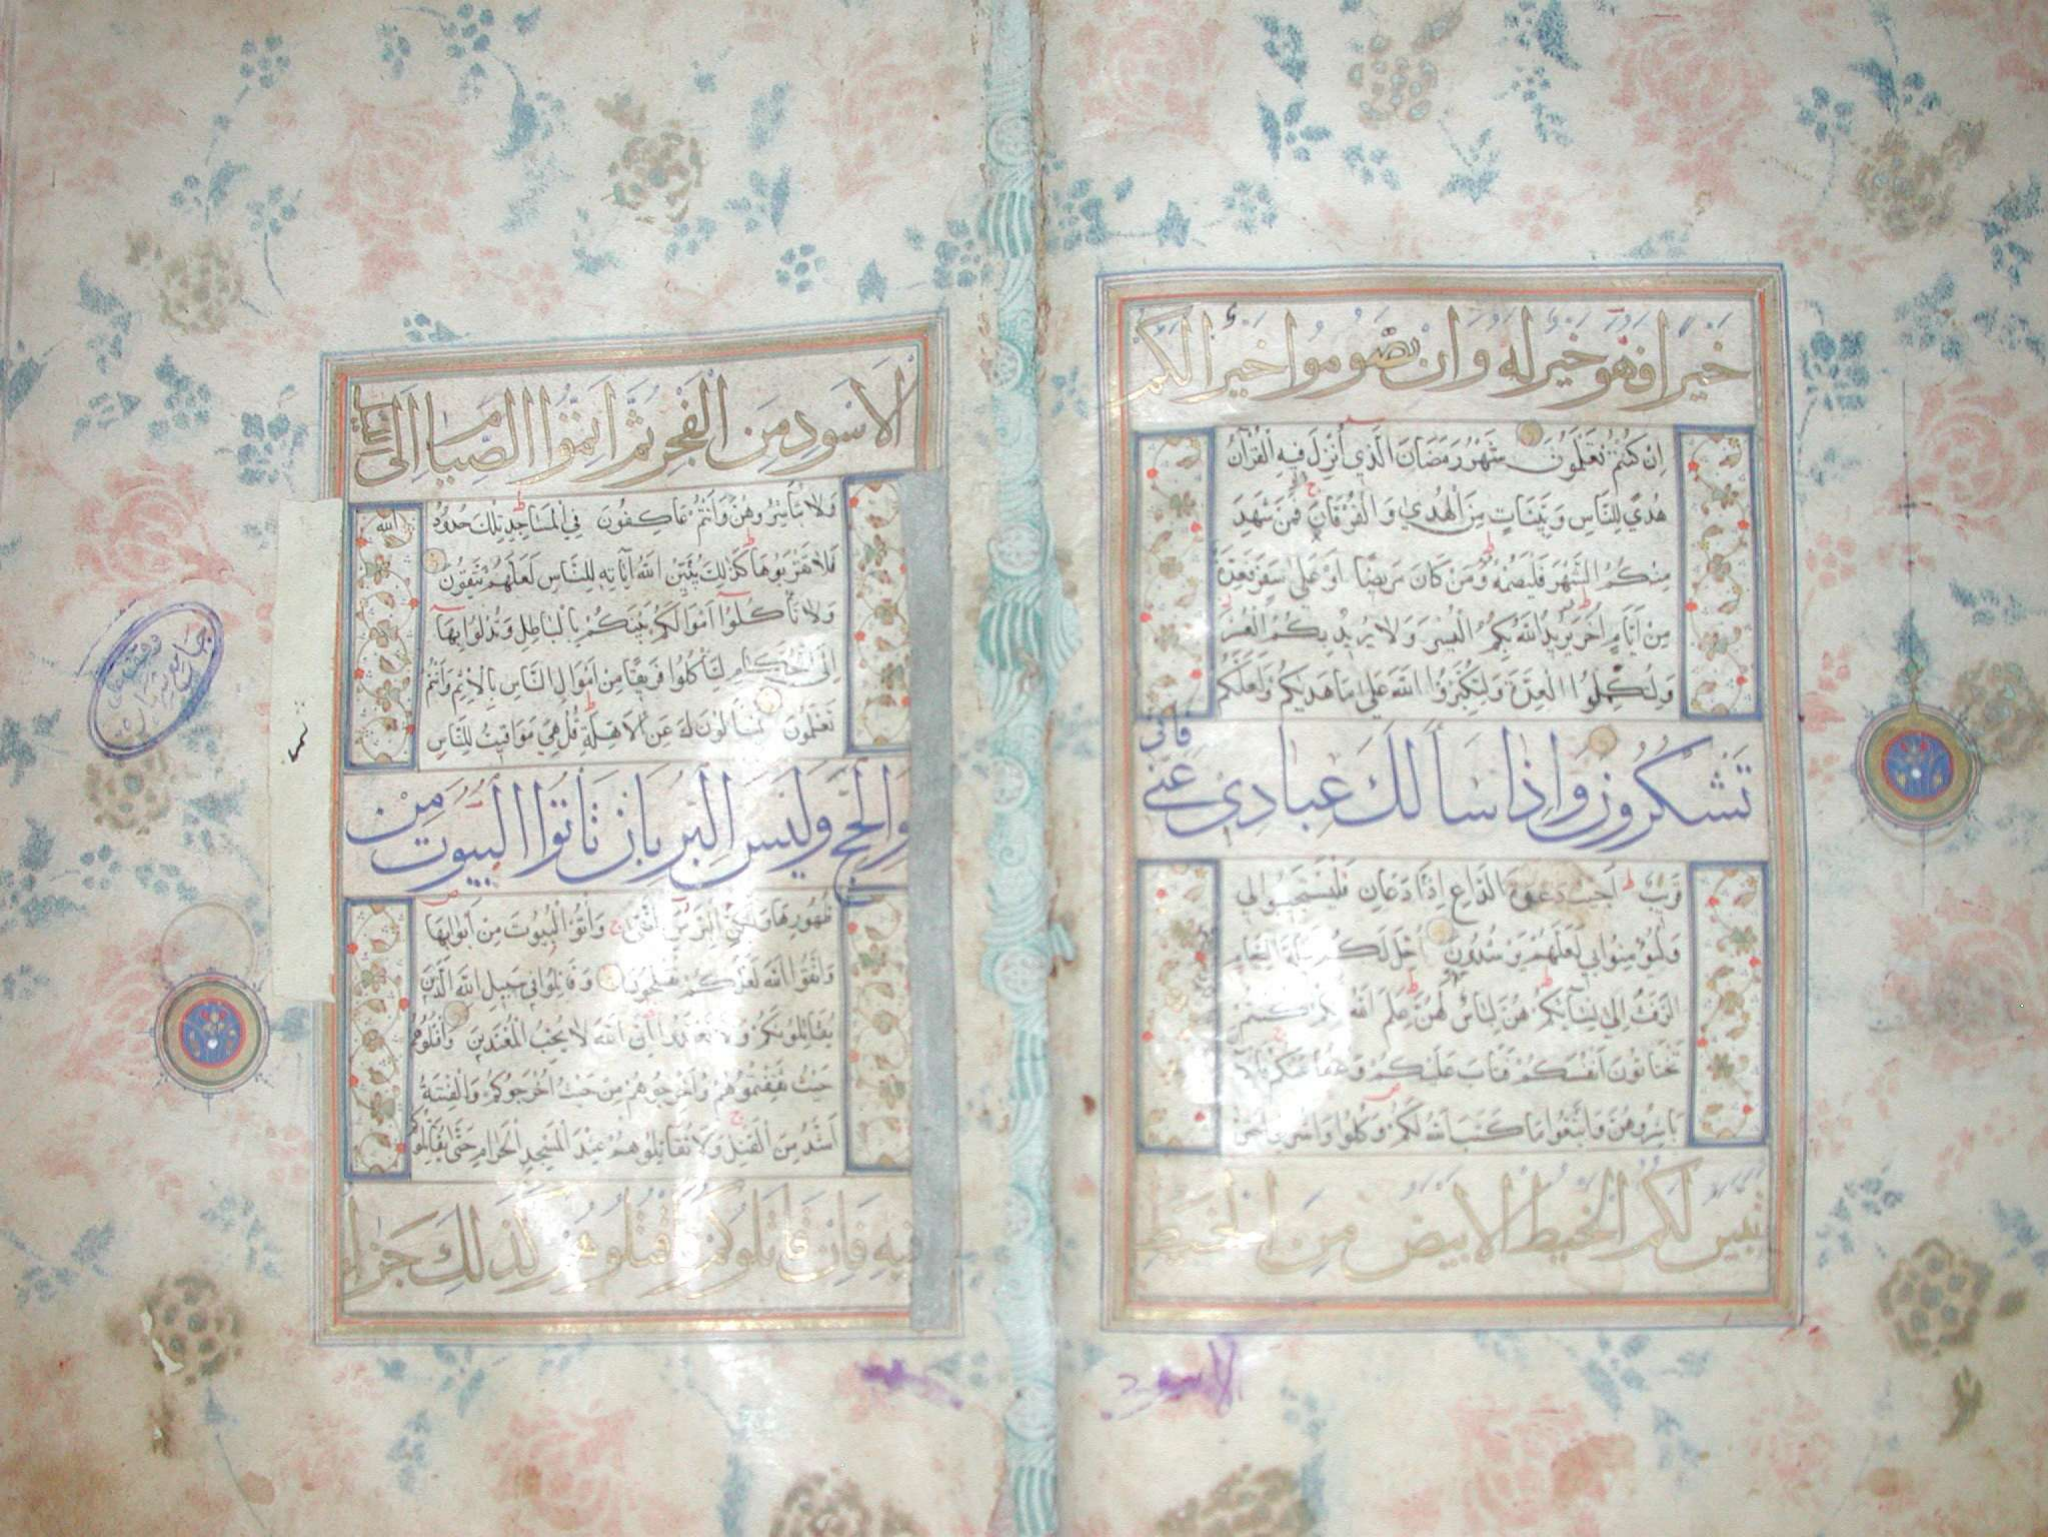 خيرا فهو خير له وان تصوموا خير لكم
ان كنتم تعلمون شهر رمضان الذي أنزل فيه القرآن
هدي للناس وبينات من الهدي والفرقان فمن شهد
منكم الشهر فليصمه ومن كان مريضا او علي سفر فعدة
من أيام أخر يريد الله بكم اليسر ولا يريد بكم العسر
ولتكملوا العدة ولتكبروا الله علي ما هديكم ولعلكم
تشكرون واذا سألك عبادي عني فاني
قريب اجيب دعوة الداع اذا دعان فليستجيبوا لي
وليؤمنوا بي لعلهم يرشدون احل لكم ليلة الصيام
الرفث الي نسائكم هن لباس لكم علم الله انكم كنتم
تختانون انفسكم فتاب عليكم وعفا عنكم فالآن
باشروهن وابتغوا ما كتب الله لكم وكلوا واشربوا حتي
تبين لكم الخيط الابيض من الخيط
الاسود
الاسود من الفجر ثم اتموا الصيام الي الليل
ولا تباشروهن وانتم عاكفون في المساجد تلك حدود الله
فلا تقربوها كذلك يبين الله آياته للناس لعلهم يتقون
ولا تأكلوا اموالكم بينكم بالباطل وتدلوا بها
الي الحكام لتأكلوا فريقا من اموال الناس بالاثم وانتم
تعلمون يسألونك عن الاهلة قل هي مواقيت للناس
والحج وليس البر بان تاتوا البيوت من
ظهورها ولكن البر من اتقي واتوا البيوت من ابوابها
واتقوا الله لعلكم تفلحون وقاتلوا في سبيل الله الذين
يقاتلونكم ولا تعتدوا ان الله لا يحب المعتدين واقتلوهم
حيث ثقفتموهم واخرجوهم من حيث اخرجوكم والفتنة
اشد من القتل ولا تقاتلوهم عند المسجد الحرام حتي يقاتلوكم
فيه فان قاتلوكم فاقتلوهم كذلك جزاء